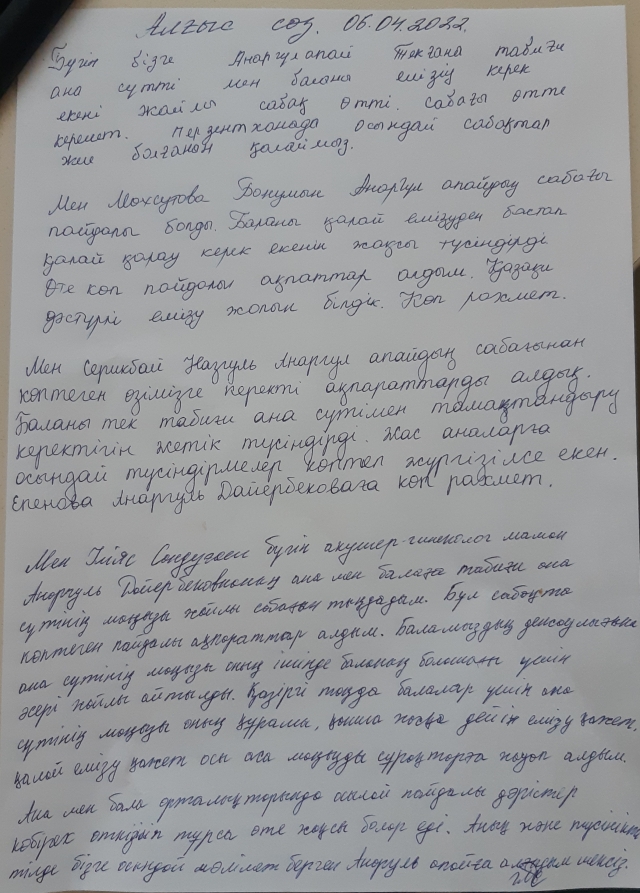 Алғыс сөз. 06.04.2022.
Бүгін бізге Анаргул апай тек ғана табиғи
ана сүтті мен баланы емізің керек
екені жайлы сабақ өтті. сабағы өтте
керемет. Перзентханада осындай сабақтар
жие болғанын қалаймыз.
Мен Махсутова Бонумын Анаргул апайдың сабағы
пайдалы болды. Баланы қалай емізуден бастап
қалай қарау керек екенін жақсы түсіндірді
Өте көп пайдалы ақпаттар алдым. Қазақи
дәстүрлі емізу жолын білдік. Көп рахмет.
Мен Серикбай Назгуль Анаргул апайдың сабағынан
көптеген өзімізге керекті ақпараттарды алдық.
Баланы тек табиғи ана сүтімен тамақтандыру
керектігін жетік түсіндірді. Жас аналарға
осындай түсіндірмелер көптеп жүргізілсе екен.
Епенова Анаргуль Дайербековаға көп рахмет.
Мен Ілияс бүгін акушер-гинеколог маман
Анаргуль Дайербековнаның ана мен балаға табиғи ана
сүтінің маңызы жайлы сабағын тыңдадым. Бұл сабақта
көптеген пайдалы ақпараттар алдым. Баламыздың денсаулығына
ана сүтінің маңызы оның ішінде баланың болашағы үшін
әсері жайлы айтылды. Қазіргі таңда балалар үшін ана
сүтінің маңызы оның құрамы, қанша жасқа дейін емізу қажет,
қалай емізу қажет осы аса маңызды сұрақтарға жауап алдым.
Ана мен бала орталықтарында осылай пайдалы дәрістер
көбірек өткізіліп тұрса өте жақсы болар еді. Анық және түсінікті
тілде бізге осындай мәлімет берген Анаргуль апайға алғысым шексіз.